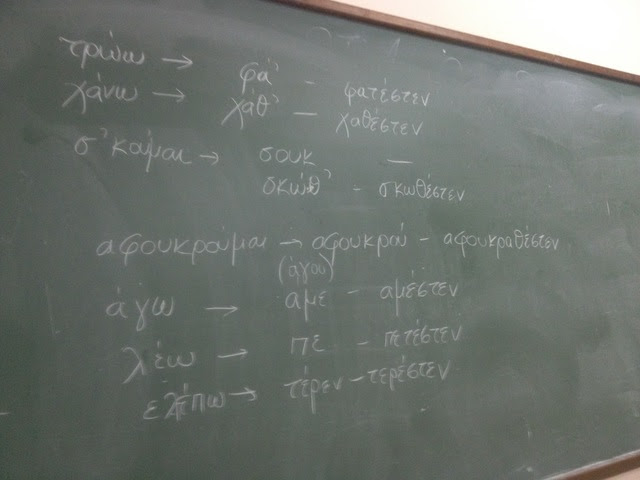 τρώω → φά' - φατέστεν
χάνω → χάθ' - χαθέστεν
σ'κούμαι → σουκ —
σκώθ' - σκωθέστεν
αφουκρούμαι → αφουκρού - αφουκραθέστεν
(άγου)
άγω → αμε - αμέστεν
λέω → πέ - πετέστεν
ελέπω → τέρεν - τερέστεν